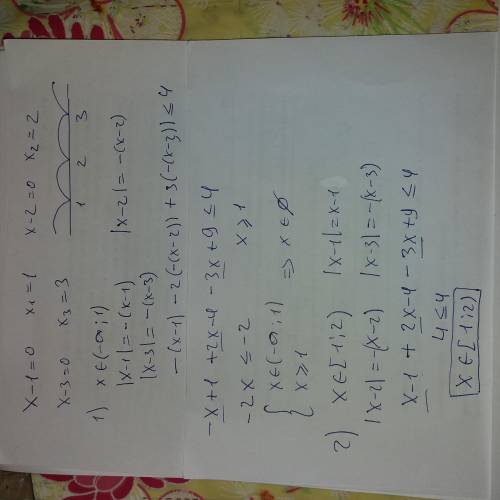 x-1=0 x₁=1 x-2=0 x₂=2
x-3=0 x₃=3
1 2 3
1) x∈(-∞;1)
|x-1|=-(x-1) |x-2|=-(x-2)
|x-3|=-(x-3)
-(x-1)-2(-(x-2))+3(-(x-3))≤4
-x+1+2x-4-3x+9≤4
-2x≤-2 x≥1
{ x∈(-∞;1)
x≥1 ⇒ x∈∅
2) x∈[1;2) |x-1|=x-1
|x-2|=-(x-2) |x-3|=-(x-3)
x-1+2x-4-3x+9≤4
4≤4
x∈[1;2)